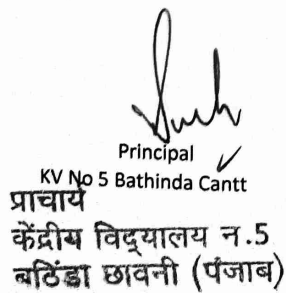 Principal
KV No 5 Bathinda Cantt
प्राचार्य
केंद्रीय विद्यालय न.5
बठिंडा छावनी (पंजाब)